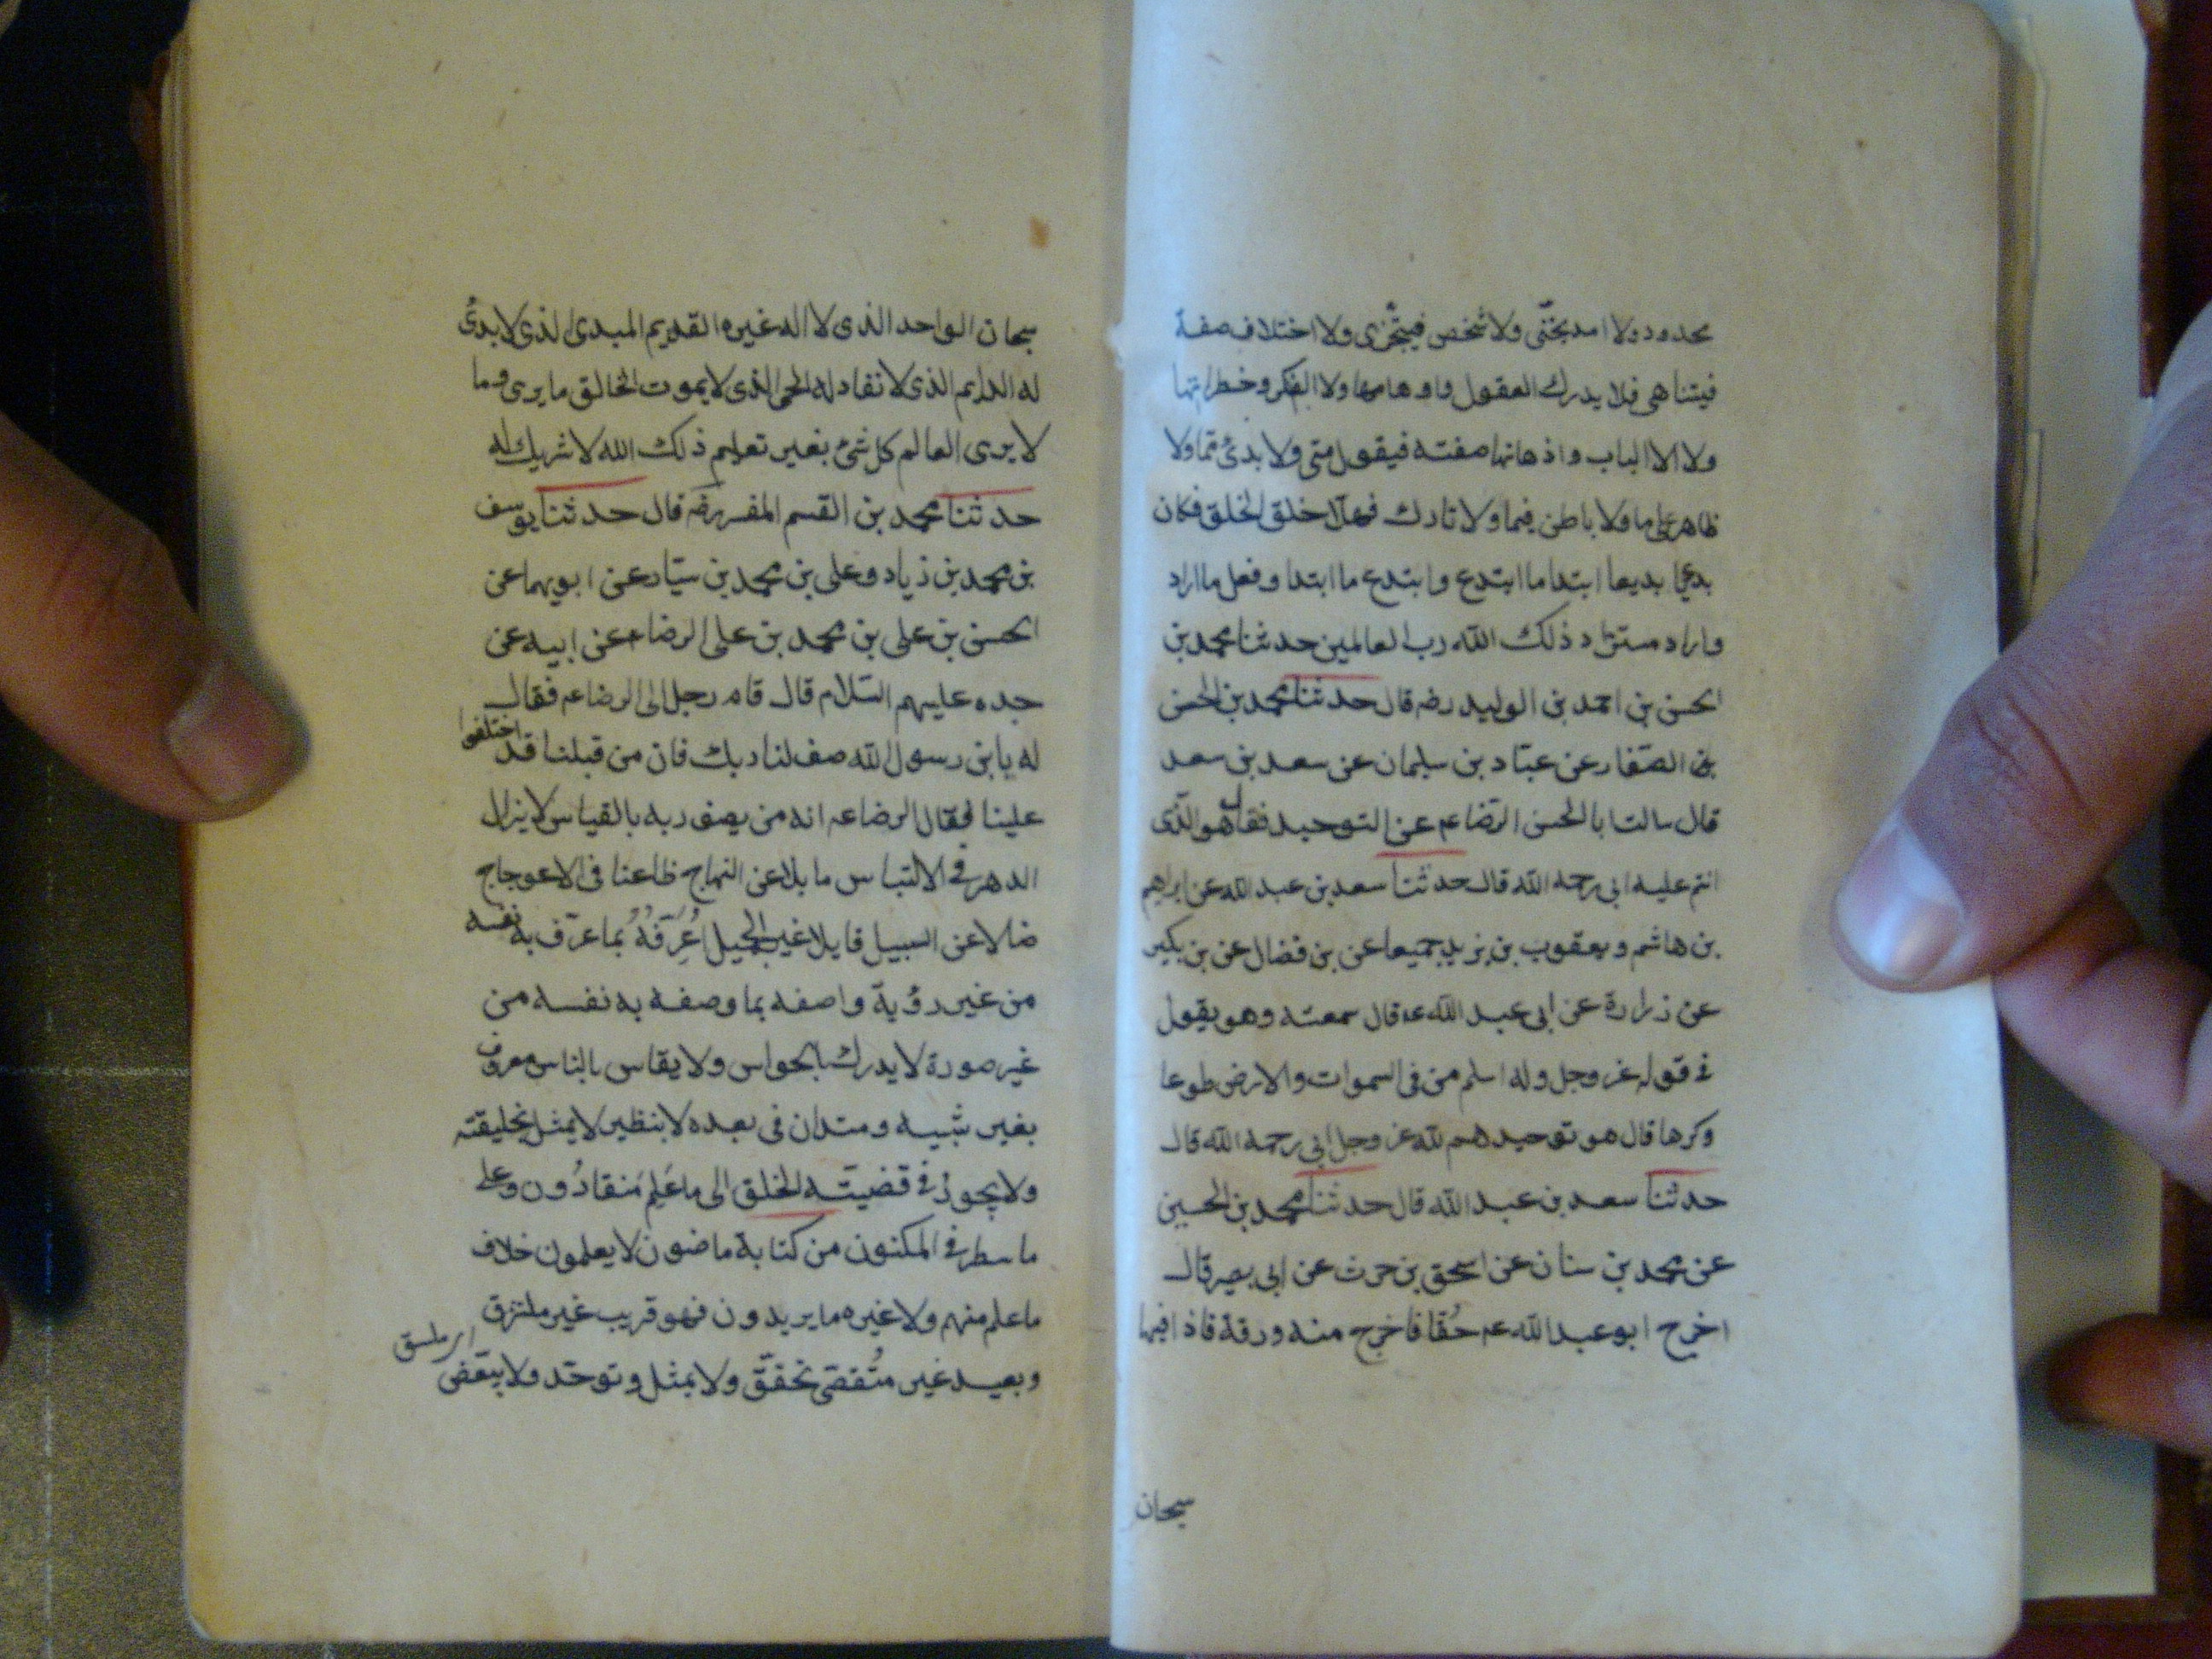 محدود ولا امد بحتى ولا شخص فيتجزى ولا اختلاف صفة
فيتناهى فلا يدرك العقول واوهامها ولا الفكر وخطراتها
ولا الالباب واذهانها صفته فيقول متى ولا بدئ مما ولا
ظاهر على ما ولا باطن فيما ولا تارك فهلا خلق الخلق فكان
بديا بديعا ابتدا ما ابتدع وابتدع ما ابتدا وفعل ما اراد
واراد ذلك الله رب العالمين حدثنا محمد بن
الحسن بن احمد بن الوليد رضه قال حدثنا محمد بن الحسن
بن الصفار عن عباد بن سليمان عن سعد بن سعد
قال سالت ابا الحسن الرضا عم عن التوحيد فقال هو الذى
انتم عليه ابى رحمه الله قال حدثنا سعد بن عبد الله عن ابراهيم
بن هاشم ويعقوب بن يزيد جميعا عن بن فضال عن بن بكير
عن زرارة عن ابى عبد الله عم قال سمعته وهو يقول
فى قوله عز وجل وله اسلم من فى السموات والارض طوعا
وكرها قال هو توحيدهم لله عز وجل ابى رحمه الله قال
حدثنا سعد بن عبد الله قال حدثنا محمد بن الحسين
عن محمد بن سنان عن اسحق بن حرث عن ابى بصير قال
اخرج ابو عبد الله عم حُقا فاخرج منه ورقة فاذا فيها
سبحان
سبحان الواحد الذى لا اله غيره القديم المبدئ الذى لا بدئ
له الدايم الذى لا نفاد له الحى الذى لا يموت الخالق ما يرى وما
لا يرى العالم كل شئ بغير تعليم ذلك الله لا شريك له
حدثنا محمد بن القسم المفسر رضه قال حدثنا يوسف
بن محمد بن زياد وعلى بن محمد بن سيّار عن ابويهما عن
الحسن بن على بن محمد بن على الرضا عم عن ابيه عن
جده عليهم السّلام قال قام رجل الى الرضا عم فقال
له يابن رسول الله صف لنا ربك فان من قبلنا قد اختلفوا
علينا فقال الرضا عم انه من يصف ربه بالقياس لا يزال
الدهر فى الالتباس مايلا عن المنهاج ظاعنا فى الاعوجاج
ضالا عن السبيل قايلا غير الجميل اُعرّفُهُ بما عرّف به نفسه
من غير رؤية واصفه بما وصف به نفسه من
غير صورة لا يدرك بالحواس ولا يقاس بالناس معروف
بغير تشبيه ومتدان فى بعده لا بنظير لا يمثل بخليقته
ولا يجوز فى قضيته الخلق الى ما عَلِمَ مُنقادُون وعلى
ما سطر فى المكنون من كتابة ماضون لا يعلمون خلاف
ما علم منهم ولا غيره ما يريدون فهو قريب غير ملتزق
وبعيد غير مُتقصّى تحقّق ولا يمثل وتوحّد ولا يبعّض